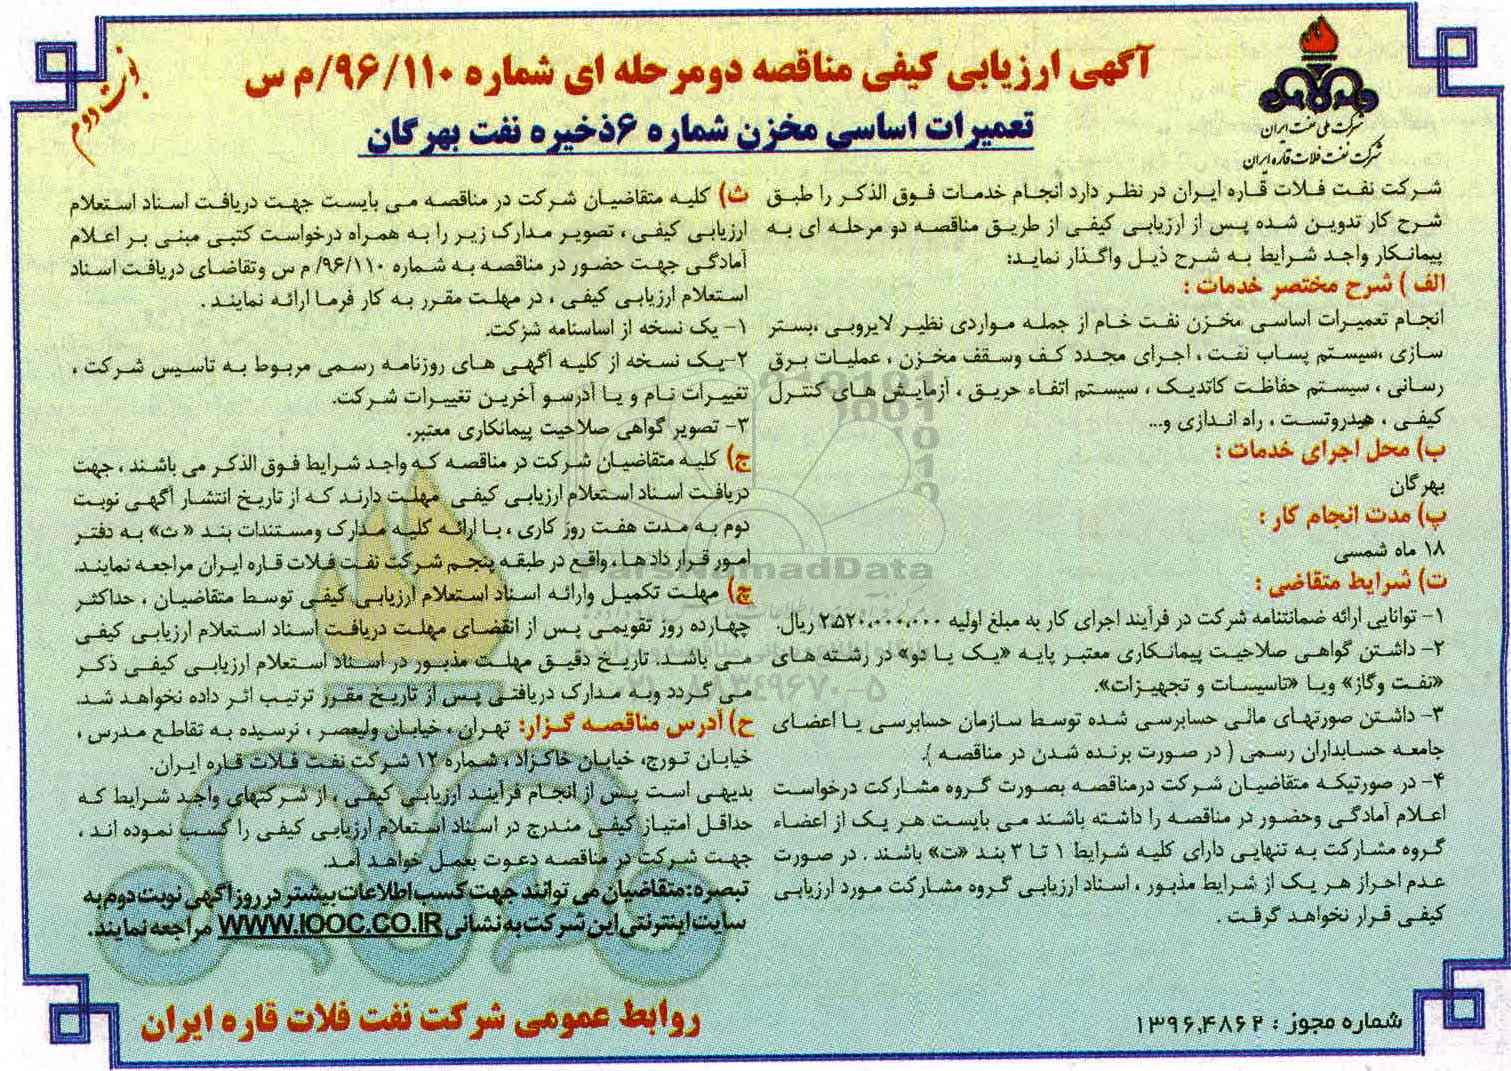 شرکت ملی نفت ایران
شرکت نفت فلات قاره ایران
آگهی ارزیابی کیفی مناقصه دومرحله ای شماره ۹۶/۱۱۰/م س
نوبت دوم
تعمیرات اساسی مخزن شماره ۶ذخیره نفت بهرگان
شرکت نفت فلات قاره ایران در نظر دارد انجام خدمات فوق الذکر را طبق
شرح کار تدوین شده پس از ارزیابی کیفی از طریق مناقصه دو مرحله ای به
پیمانکار واجد شرایط به شرح ذیل واگذار نماید:
الف ) شرح مختصر خدمات :
انجام تعمیرات اساسی مخزن نفت خام از جمله مواردی نظیر لایروبی ،بستر
سازی ،سیستم پساب نفت ، اجرای مجدد کف وسقف مخزن ، عملیات برق
رسانی ، سیستم حفاظت کاتدیک ، سیستم اتفاء حریق ، آزمایش های کنترل
کیفی ، هیدروتست ، راه اندازی و...
ب) محل اجرای خدمات :
بهرگان
پ) مدت انجام کار :
۱۸ ماه شمسی
ت) شرایط متقاضی :
۱- توانایی ارائه ضمانتنامه شرکت در فرآیند اجرای کار به مبلغ اولیه ۲،۵۲۰،۰۰۰،۰۰۰ ریال.
۲- داشتن گواهی صلاحیت پیمانکاری معتبر پایه «یک یا دو» در رشته های
«نفت وگاز» ویا «تاسیسات و تجهیزات».
۳- داشتن صورتهای مالی حسابرسی شده توسط سازمان حسابرسی یا اعضای
جامعه حسابداران رسمی ( در صورت برنده شدن در مناقصه ).
۴- در صورتیکه متقاضیان شرکت درمناقصه بصورت گروه مشارکت درخواست
اعلام آمادگی وحضور در مناقصه را داشته باشند می بایست هر یک از اعضاء
گروه مشارکت به تنهایی دارای کلیه شرایط ۱ تا ۳ بند «ت» باشند . در صورت
عدم احراز هر یک از شرایط مذبور ، اسناد ارزیابی گروه مشارکت مورد ارزیابی
کیفی قرار نخواهد گرفت .
ث) کلیه متقاضیان شرکت در مناقصه می بایست جهت دریافت اسناد استعلام
ارزیابی کیفی ، تصویر مدارک زیر را به همراه درخواست کتبی مبنی بر اعلام
آمادگی جهت حضور در مناقصه به شماره ۹۶/۱۱۰/ م س وتقاضای دریافت اسناد
استعلام ارزیابی کیفی ، در مهلت مقرر به کار فرما ارائه نمایند .
۱- یک نسخه از اساسنامه شرکت.
۲-یک نسخه از کلیه آگهی های روزنامه رسمی مربوط به تاسیس شرکت ،
تغییرات نام و یا آدرسو آخرین تغییرات شرکت.
۳- تصویر گواهی صلاحیت پیمانکاری معتبر.
ج) کلیه متقاضیان شرکت در مناقصه که واجد شرایط فوق الذکر می باشند ، جهت
دریافت اسناد استعلام ارزیابی کیفی مهلت دارند که از تاریخ انتشار آگهی نوبت
دوم به مدت هفت روز کاری ، با ارائه کلیه مدارک ومستندات بند « ث» به دفتر
امور قرار دادها ، واقع در طبقه پنجم شرکت نفت فلات قاره ایران مراجعه نمایند.
چ) مهلت تکمیل وارائه اسناد استعلام ارزیابی کیفی توسط متقاضیان ، حداکثر
چهارده روز تقویمی پس از انقضای مهلت دریافت اسناد استعلام ارزیابی کیفی
می باشد. تاریخ دقیق مهلت مذبور در اسناد استعلام ارزیابی کیفی ذکر
می گردد وبه مدارک دریافتی پس از تاریخ مقرر ترتیب اثر داده نخواهد شد.
ح) آدرس مناقصه گزار: تهران ، خیابان ولیعصر ، نرسیده به تقاطع مدرس ،
خیابان تورج، خیابان خاکزاد ، شماره ۱۲ شرکت نفت فلات قاره ایران.
بدیهی است پس از انجام فرآیند ارزیابی کیفی ، از شرکتهای واجد شرایط که
حداقل امتیاز کیفی مندرج در اسناد استعلام ارزیابی کیفی را کسب نموده اند ،
جهت شرکت در مناقصه دعوت بعمل خواهد آمد.
تبصره: متقاضیان می توانند جهت کسب اطلاعات بیشتر در روز آگهی نوبت دوم به
سایت اینترنتی این شرکت به نشانی WWW.IOOC.CO.IR مراجعه نمایند.
شماره مجوز : ۱۳۹۶,۴۸۶۲
روابط عمومی شرکت نفت فلات قاره ایران